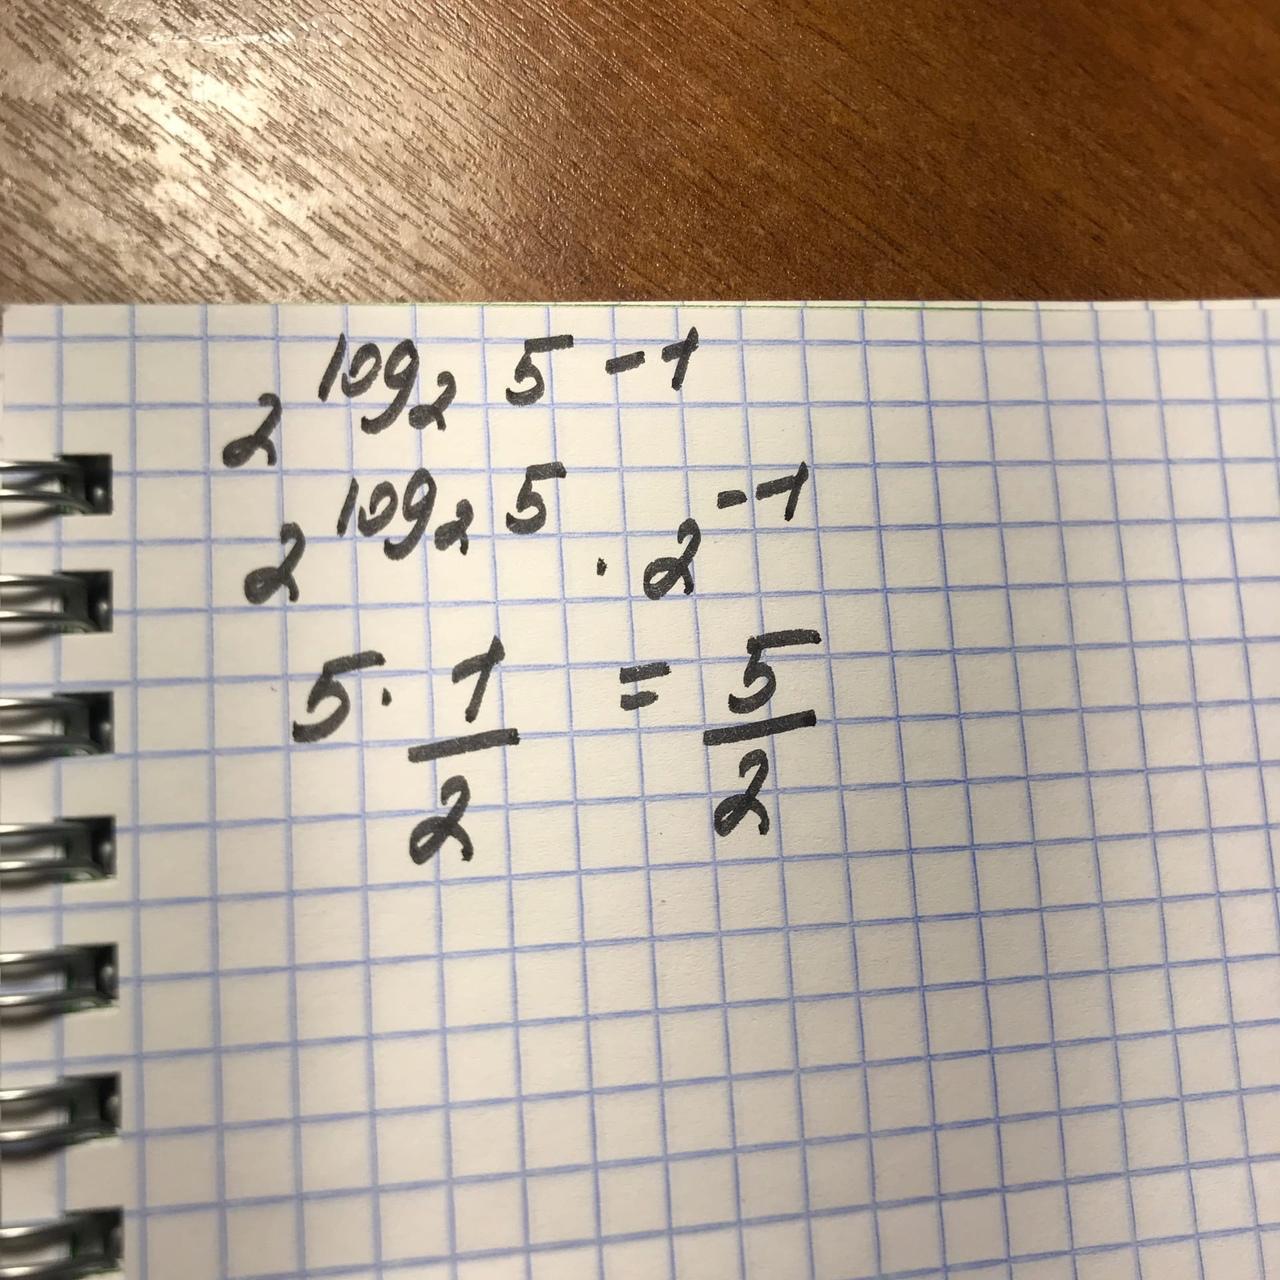 2^{log_2 5 - 1}
2^{log_2 5} · 2^{-1}
5 · \frac{1}{2} = \frac{5}{2}